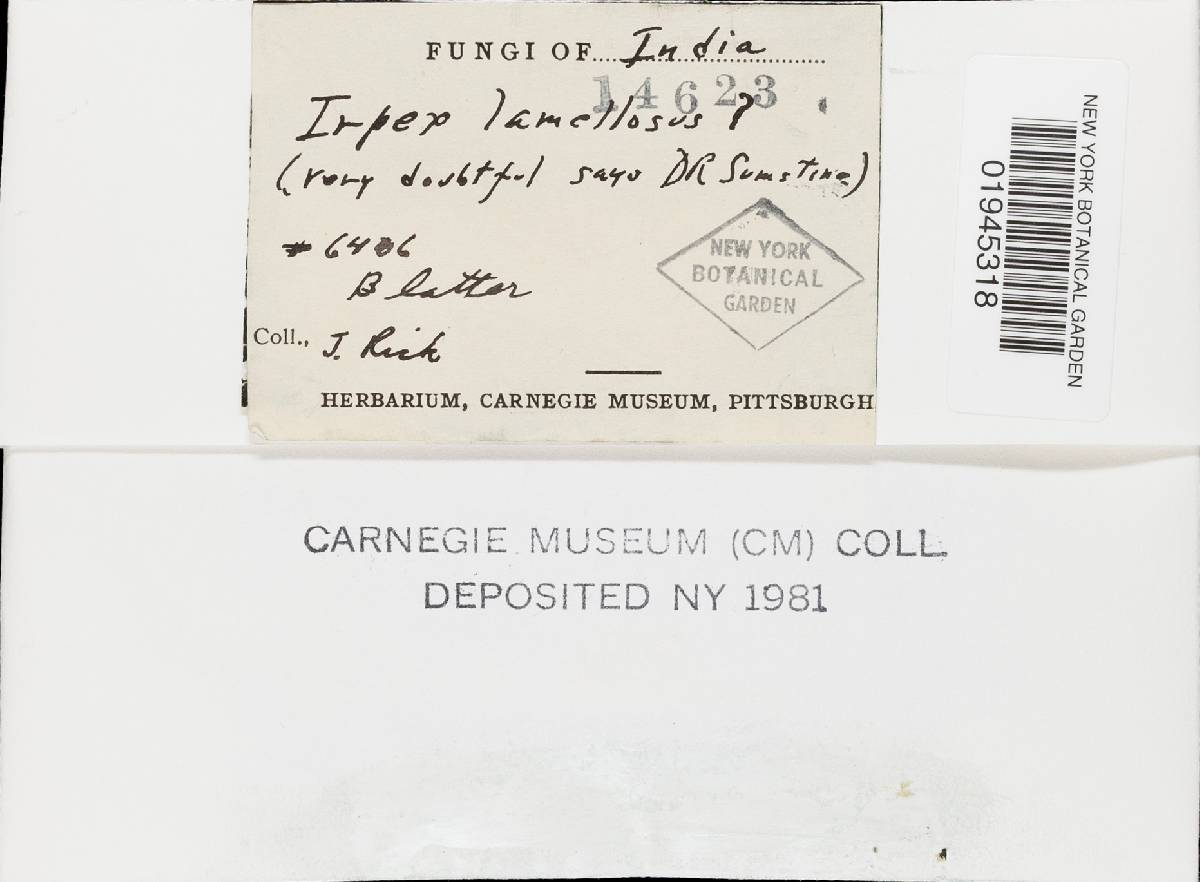 FUNGI OF India
14623
Irpex lamellosus ?
(very doubtful says DR Sumstine)
Blatter
NEW YORK
BOTANICAL
GARDEN
Coll., J. Rick
HERBARIUM, CARNEGIE MUSEUM, PITTSBURGH
NEW YORK BOTANICAL GARDEN
01945318
CARNEGIE MUSEUM (CM) COLL.
DEPOSITED NY 1981